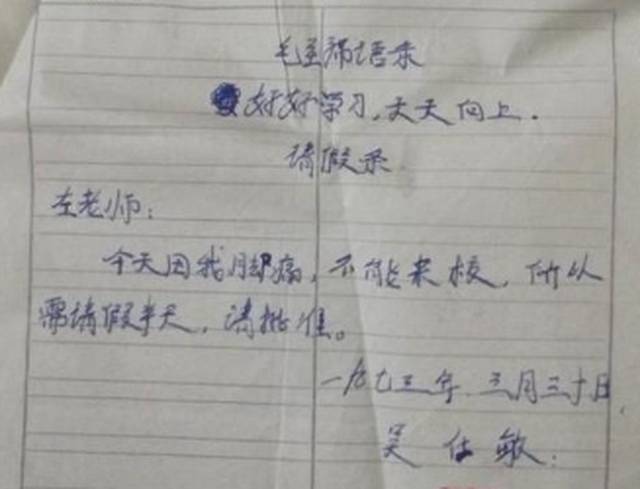 毛主席语录
好好学习,天天向上.
请假条
左老师:
今天因我脚痛,不能来校,所以
需请假半天,请批准。
一九七三年.三月三十日
吴仕敏.